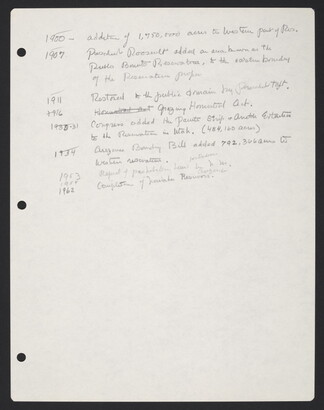 1900 – addition of 1,750,000 acres to Western part of Res.
1907 President Roosevelt added an area known as the
Paiute Reservation, to the western boundary
of the Reservation proper
1911 Restored to the public domain by President Taft.
1916 Homestead Act Grazing Homestead Act.
1930-31 Congress added the Paiute Strip + Aneth Extension
to the Reservation in Utah. (484,160 acres)
1934 Arizona Boundary Bill added 792,366 acres to
western reservation.
1953 Repeal of prohibition laws by
1962 Completion of Navajo Reservoir.